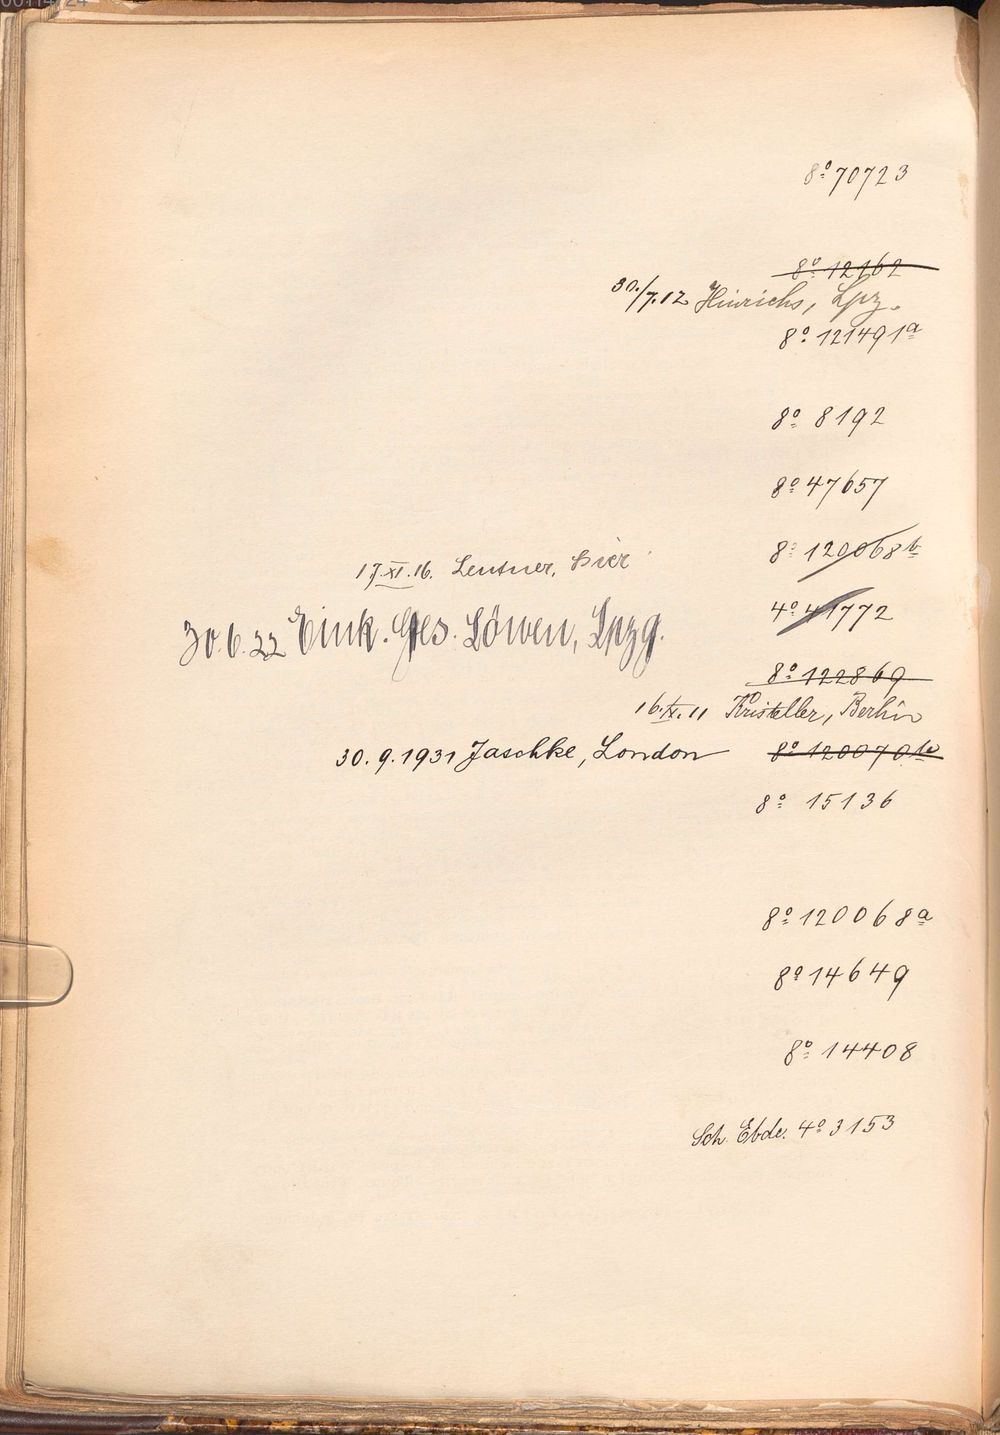 00114724
8º 70723
8º 12162
30./7.12 Hinrichs, Lpz.
8º 121491a
8º 8192
8º 47657
8º 120068b
17.XI.16. Lentner, hier
4º 41772
30.6.22 Eink. Ges. Löwen, Lpzg.
8º 122869
16.IX.11 Kristeller, Berlin
30.9.1931 Jaschke, London 8º 120070b
8º 15136
8º 120068a
8º 14649
8º 14408
Sch. Ebde. 4º 3153